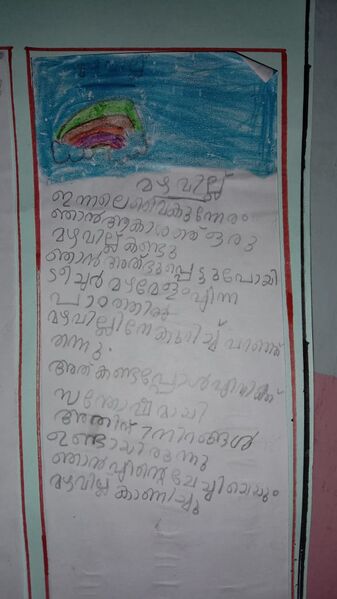 മഴവില്ല്
ഇന്നലെ വൈകുന്നേരം
ഞാൻ ആകാശത്ത് ഒരു
മഴവില്ല് കണ്ടു
ഞാൻ അത്ഭുപ്പെട്ടുപോയി
ടീച്ചർ മഴമേളം എന്ന
പാഠത്തിൽ
മഴവില്ലിനേക്കുറിച്ച് പറഞ്ഞ്
തന്നു.
അത് കണ്ടപ്പോൾ എനിക്ക്
സന്തോഷമായി
അതിന് 7 നിറങ്ങൾ
ഉണ്ടായിരുന്നു
ഞാൻ എന്റെ ചേച്ചിയെയും
മഴവില്ല് കാണിച്ചു